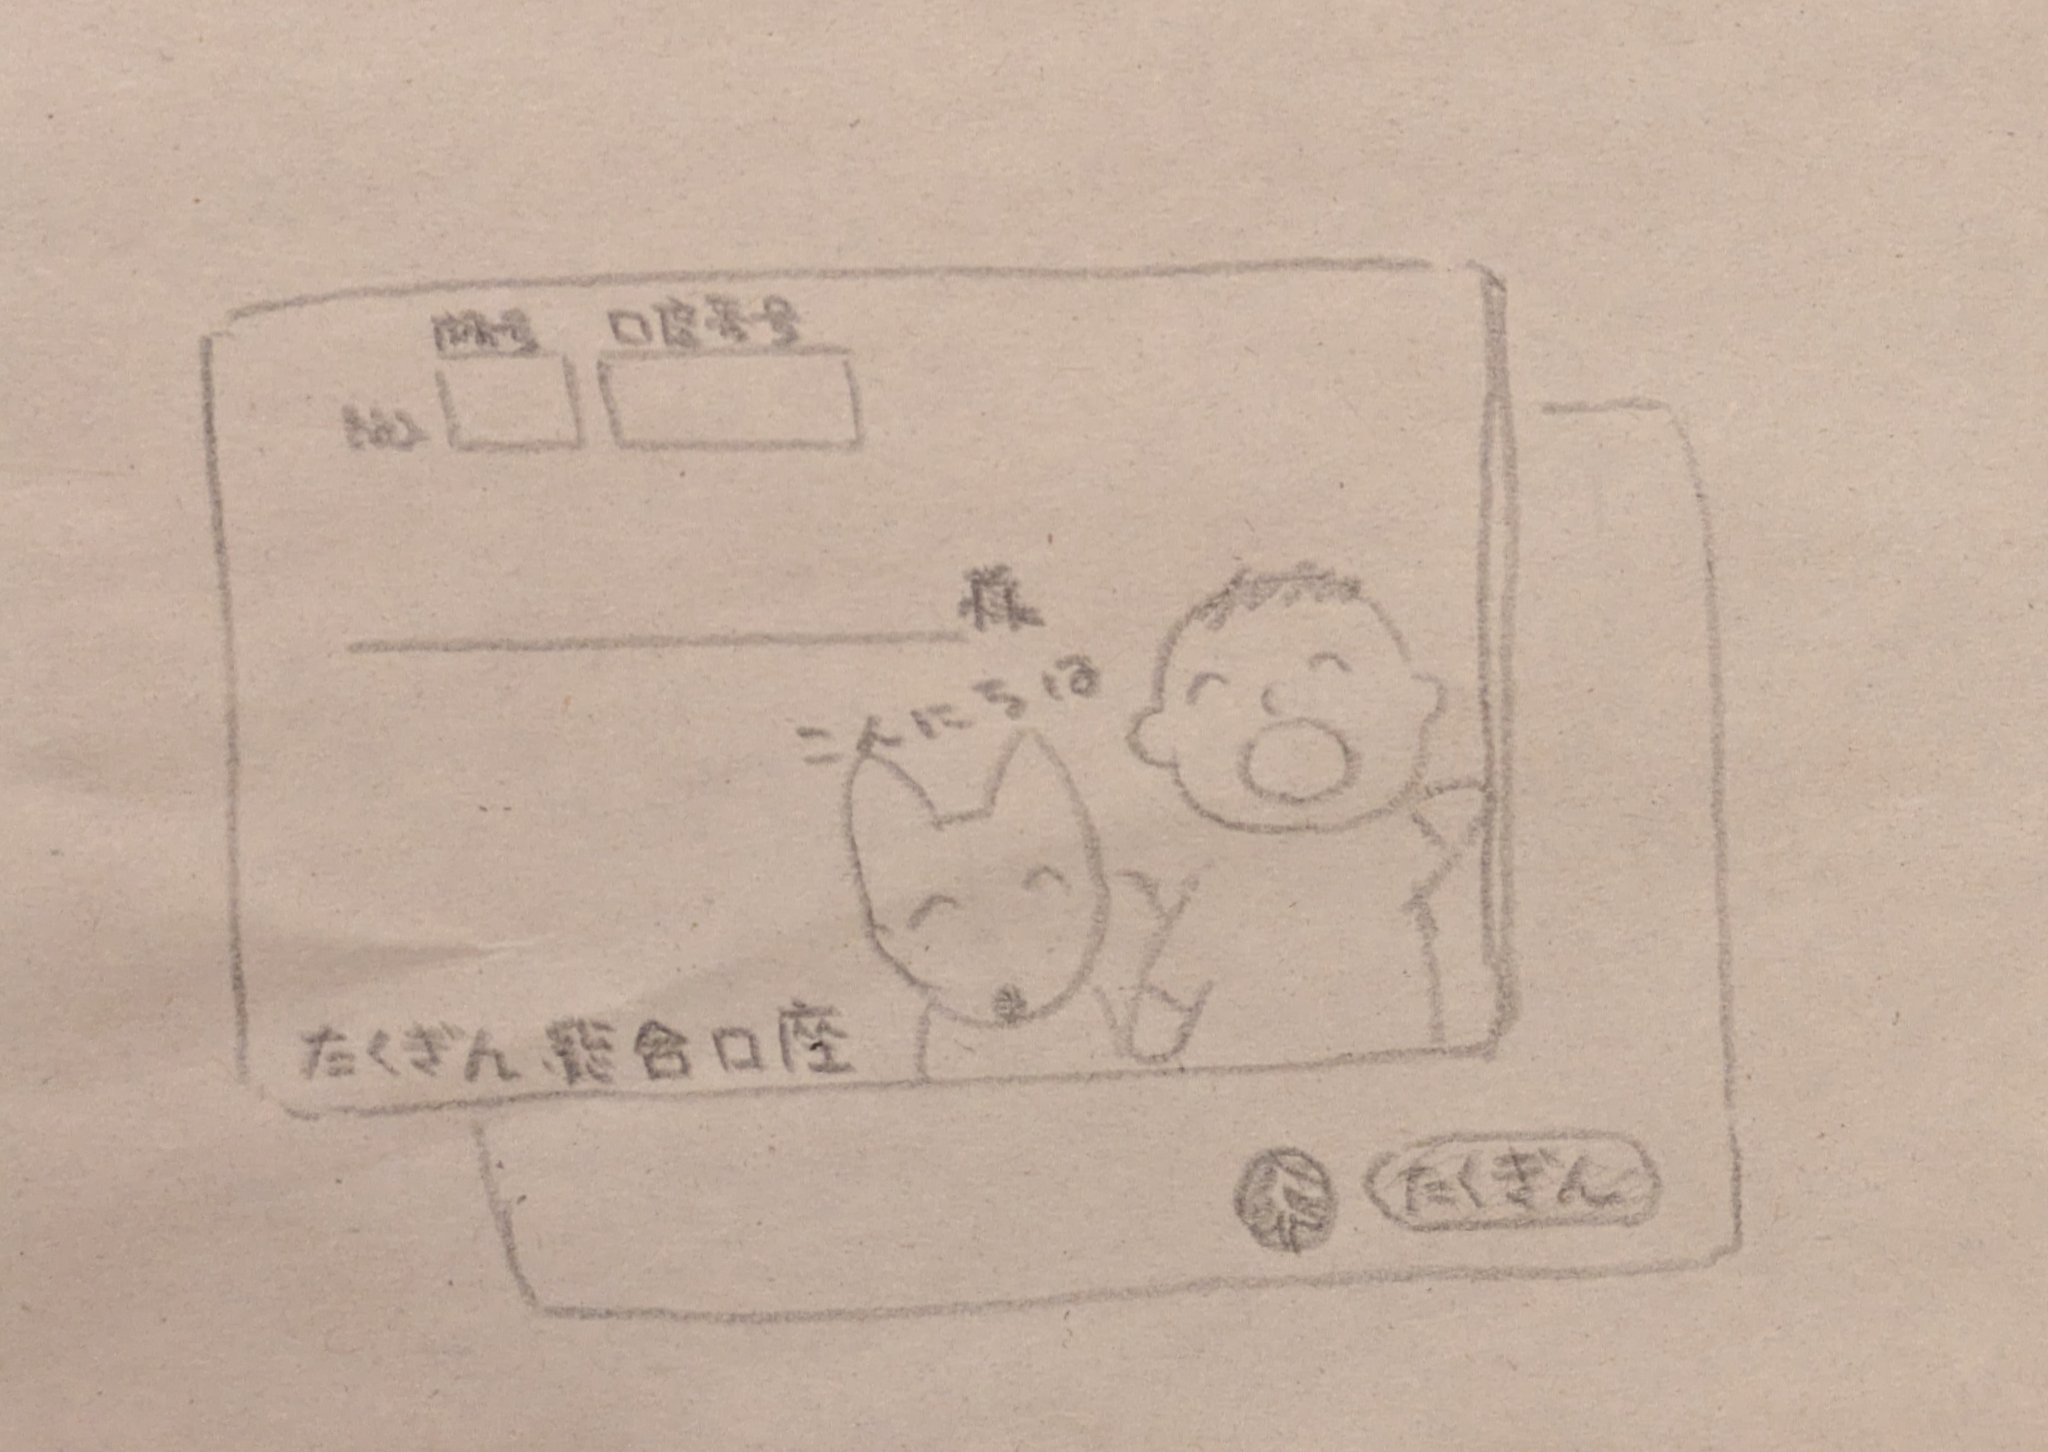 店番号 口座番号
様
こんにちは
たくぎん 総合口座
たくぎん